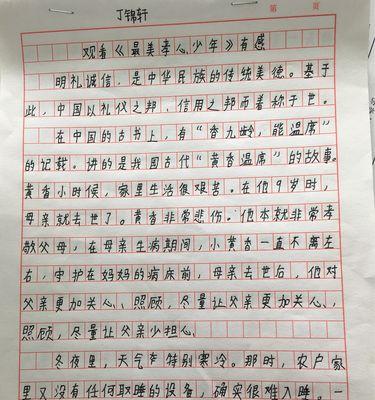 丁锦轩
第 页
观看《最美孝心少年》有感
明礼诚信，是中华民族的传统美德。基于
此，中国以礼仪之邦，信用之邦而着称于世。
在中国的古书上，有“香九龄，能温席”
的记载。讲的是我国古代“黄香温席”的故事。
黄香小时候，家里生活很艰苦。在他9岁时，
母亲就去世了。黄香非常悲伤。他本就非常孝
敬父母，在母亲生病期间，小黄香一直不离左
右，守护在妈妈的病床前，母亲去世后，他对
父亲更加关心、照顾，尽量让父亲更加关心、
照顾，尽量让父亲少担心
冬夜里，天气特别寒冷。那时，农户家
里又没有任何取暖的设备，确实很难入睡。一